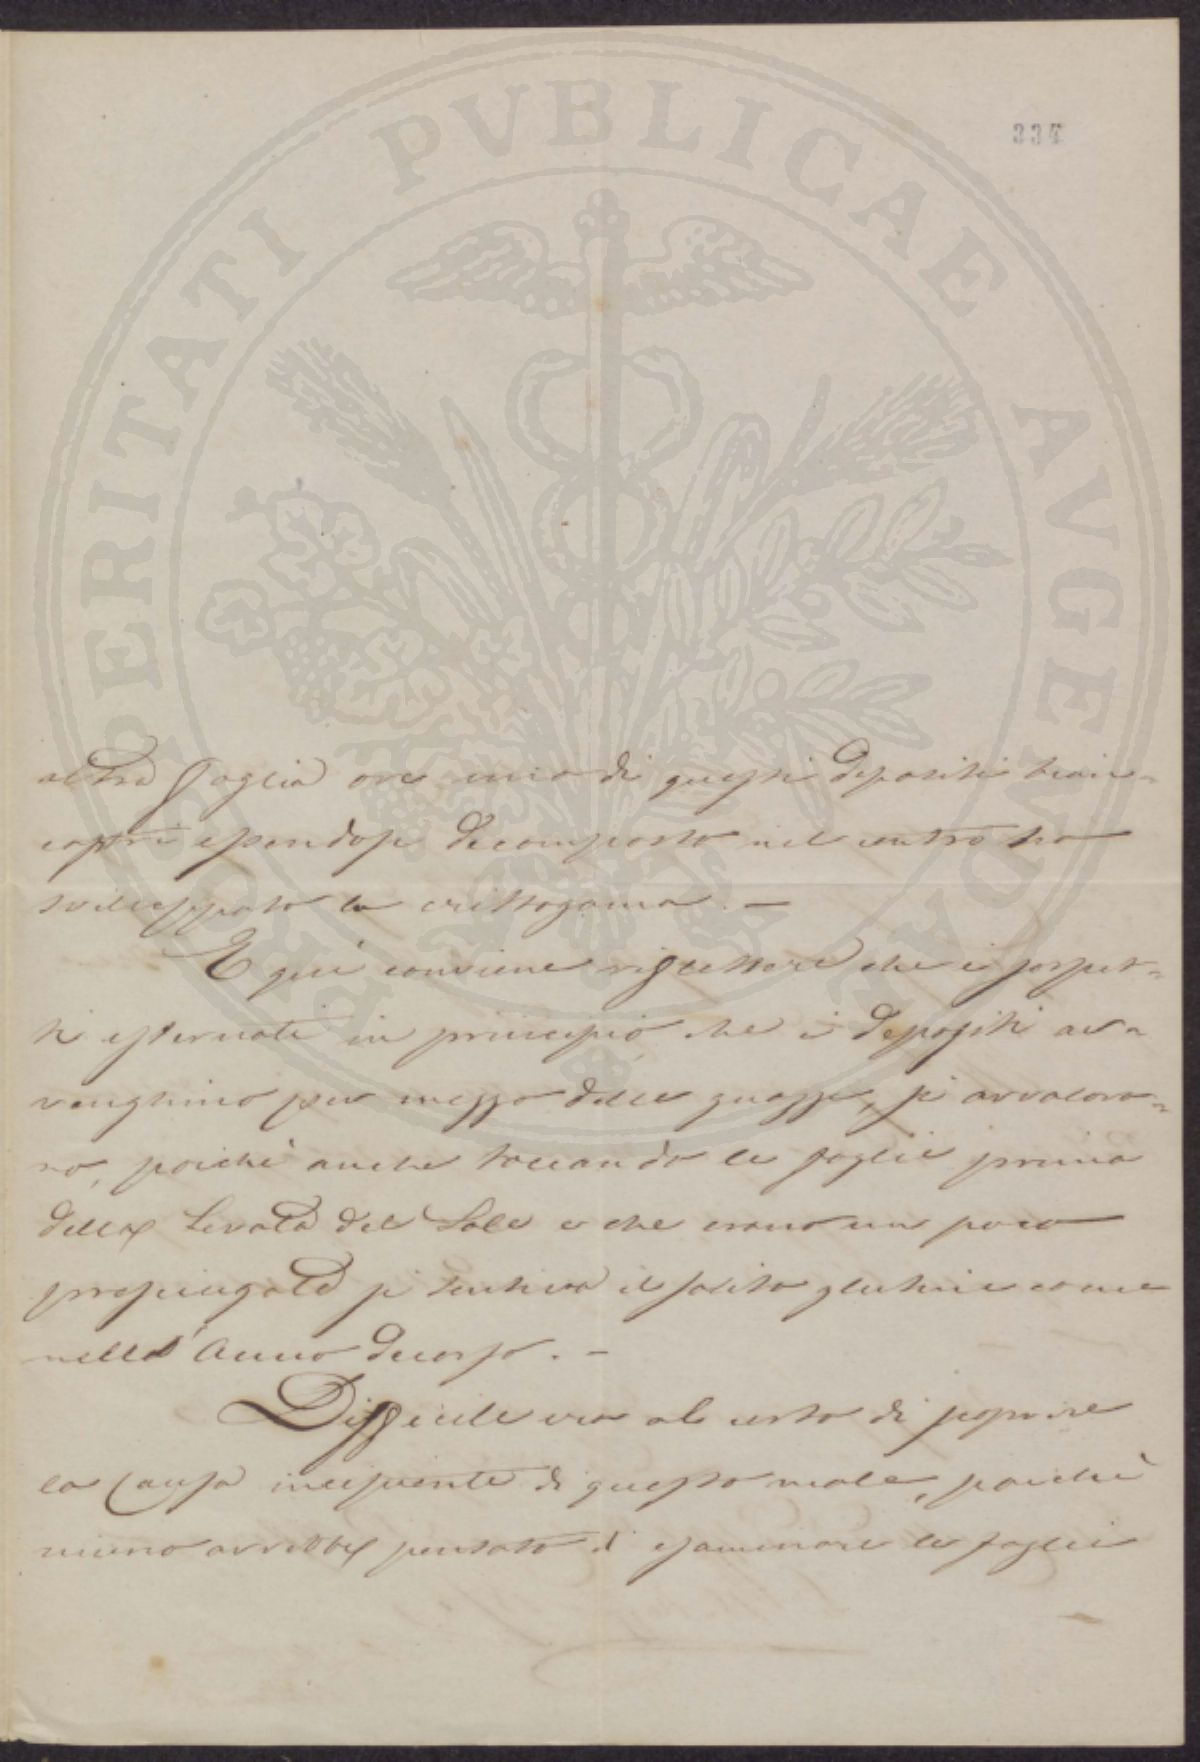 PROSPERITATI PVBLICAE AVGENDAE
334
altra foglia ove uno di questi depositi bian-
castri essendosi decomposto nel centro ha
sviluppato la crittogama. —
E quì conviene riflettere che i sospet-
ti esternati in principio che i depositi av-
venghino per mezzo delle guazze, si avvalora-
no, poichè anche toccando le foglie prima
della Levata del Sole e che erano un poco
prosciugate si sentiva il solito glutine come
nell' Anno decorso. —
Difficile era al certo di scoprire
la Causa incipiente di questo male, poichè
niuno avrebbe pensato di esaminare le foglie